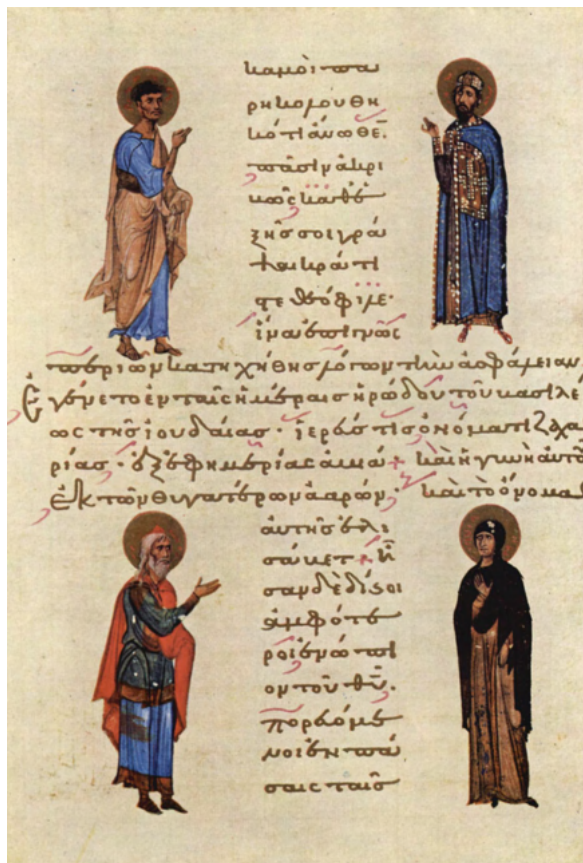 κἀμοὶ πα
ρηκολουθη
κότι ἄνωθε̅.
πᾶσιν ἀκρι
βῶς καθε
ξῆς σοι γρά
ψαι κρατι
στε θεόφιλε·
ἵνα ἐπιγνῷς
περὶ ὧν κατηχήθης λόγων τὴν ἀσφάλειαν
Ἐγένετο ἐν ταῖς ἡμέραις ἡρώδου τοῦ βασιλέ
ως τῆς ἰουδαίας· ἱερεύς τις ὀνόματι ζαχα
ρίας· ἐξ ἐφημερίας ἀβιά· καὶ ἡ γυνὴ αὐτοῦ
ἐκ τῶν θυγατέρων ἀαρών· καὶ τὸ ὄνομα
αὐτῆς ἐλι
σάβετ· ἦ
σαν δὲ δίκαιοι
ἀμφότε
ροι ἐνώπι
ον τοῦ θ̅υ̅.
πορευόμε
νοι ἐν πά
σαις ταῖς